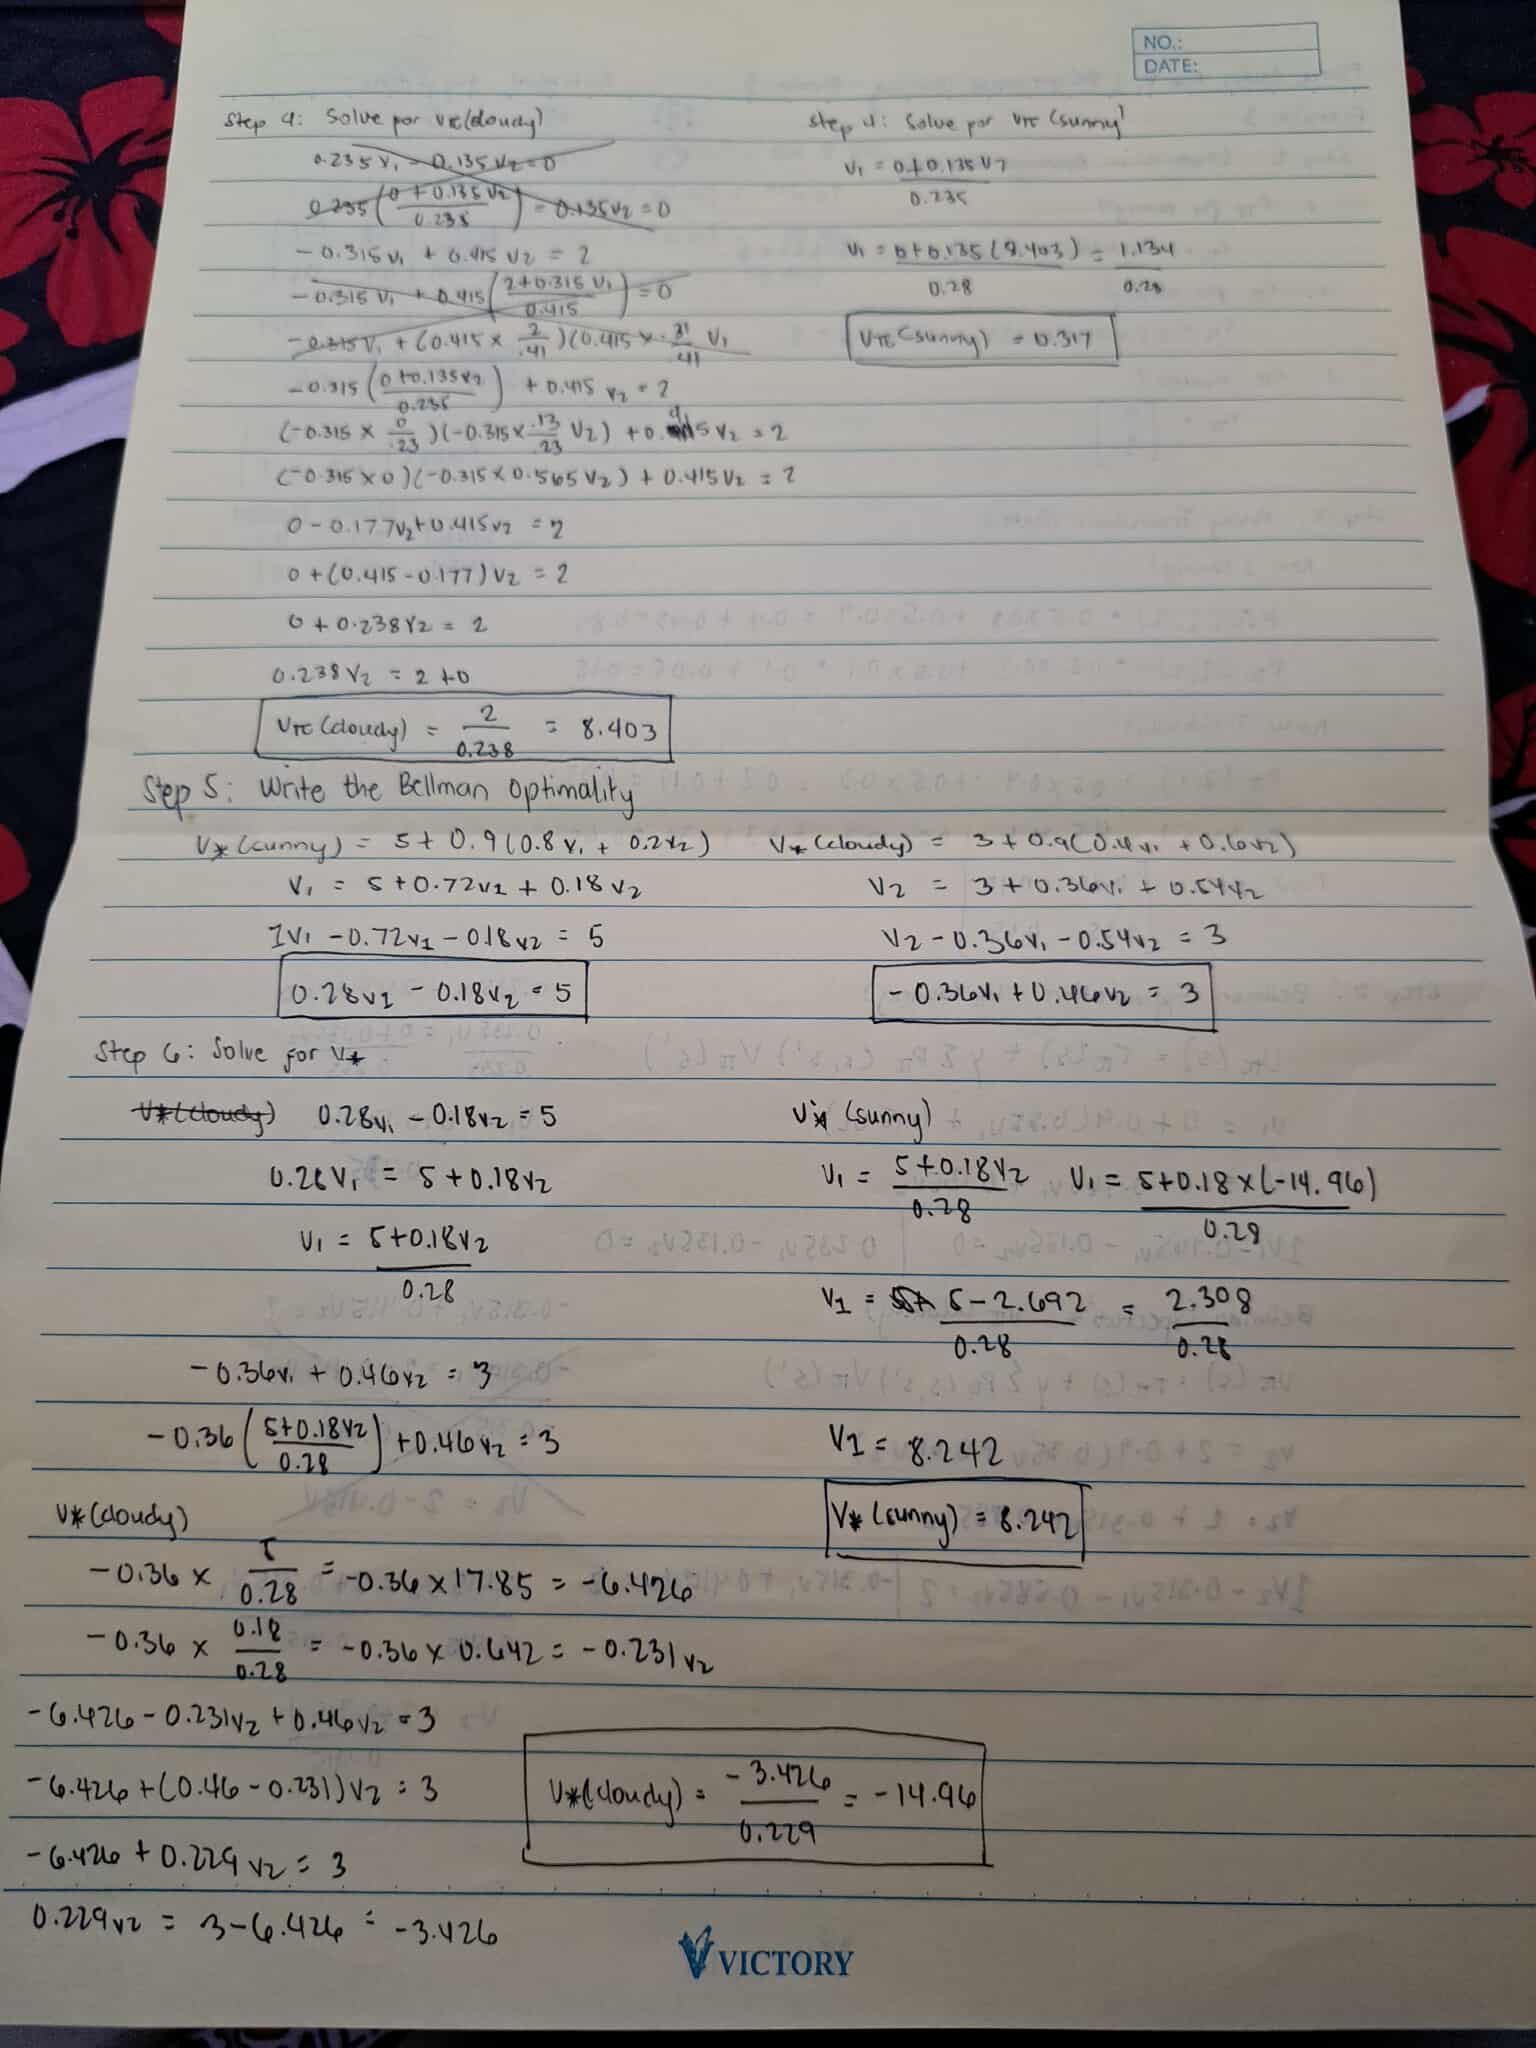 NO.:
DATE:
Step 4: Solve por Vπ(cloudy)
0.235 V1 - 0.135 V2 = 0
0.235 (0 + 0.135 V2 / 0.235) - 0.135 V2 = 0
- 0.315 V1 + 0.415 V2 = 2
- 0.315 V1 + 0.415 (2 + 0.315 V1 / 0.415) = 0
- 0.315 V1 + (0.415 x 2 / .41) (0.415 x .31 / .41 V1
- 0.315 (0 + 0.135 V2 / 0.235) + 0.415 V2 = 2
(-0.315 x 0 / .23) (-0.315 x .13 / .23 V2) + 0.415 V2 = 2
(-0.315 x 0) (-0.315 x 0.565 V2) + 0.415 V2 = 2
0 - 0.177 V2 + 0.415 V2 = 2
0 + (0.415 - 0.177) V2 = 2
0 + 0.238 V2 = 2
0.238 V2 = 2 + 0
Vπ (cloudy) = 2 / 0.238 = 8.403
Step 4: Solve por Vπ (sunny)
V1 = 0 + 0.135 V2 / 0.235
V1 = 0 + 0.135 (8.403) / 0.28 = 1.134 / 0.28
Vπ (sunny) = 0.317
Step 5: Write the Bellman Optimality
V* (sunny) = 5 + 0.9 (0.8 V1 + 0.2 V2)
V1 = 5 + 0.72 V1 + 0.18 V2
1V1 - 0.72 V1 - 0.18 V2 = 5
0.28 V1 - 0.18 V2 = 5
V* (cloudy) = 3 + 0.9 (0.4 V1 + 0.6 V2)
V2 = 3 + 0.36 V1 + 0.54 V2
V2 - 0.36 V1 - 0.54 V2 = 3
- 0.36 V1 + 0.46 V2 = 3
Step 6: Solve for V*
V* (cloudy) 0.28 V1 - 0.18 V2 = 5
0.28 V1 = 5 + 0.18 V2
V1 = 5 + 0.18 V2 / 0.28
- 0.36 V1 + 0.46 V2 = 3
- 0.36 (5 + 0.18 V2 / 0.28) + 0.46 V2 = 3
V* (cloudy)
- 0.36 x 5 / 0.28 = -0.36 x 17.85 = -6.426
- 0.36 x 0.18 / 0.28 = -0.36 x 0.642 = -0.231 V2
- 6.426 - 0.231 V2 + 0.46 V2 = 3
- 6.426 + (0.46 - 0.231) V2 = 3
- 6.426 + 0.229 V2 = 3
0.229 V2 = 3 - 6.426 = -3.426
V* (cloudy) = - 3.426 / 0.229 = - 14.96
V* (sunny)
V1 = 5 + 0.18 V2 / 0.28 V1 = 5 + 0.18 x (-14.96) / 0.28
V1 = 5 - 2.692 / 0.28 = 2.308 / 0.28
V1 = 8.242
V* (sunny) = 8.242
VICTORY